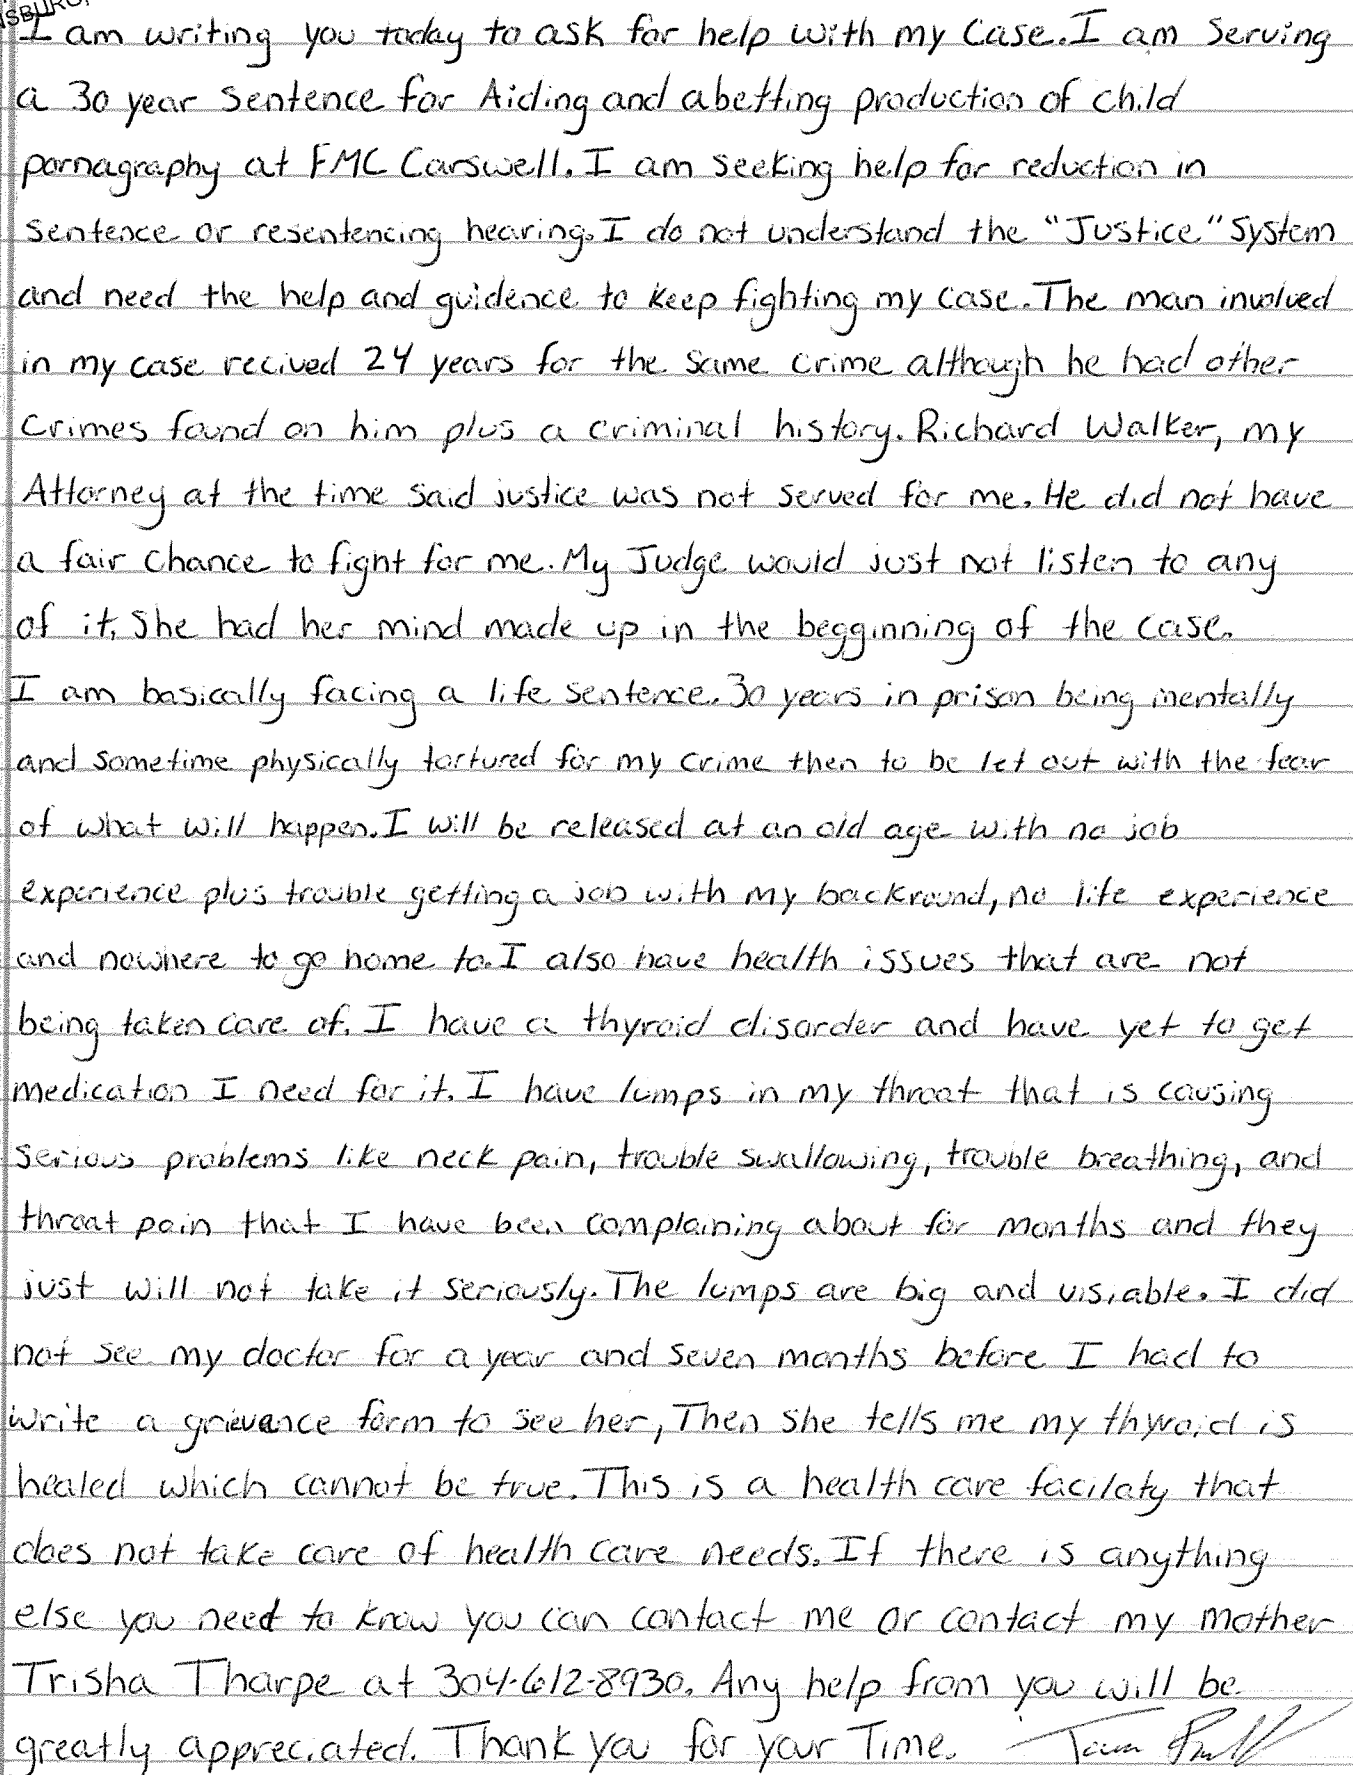 I am writing you today to ask for help with my case. I am serving
a 30 year sentence for Aiding and abetting production of child
pornagraphy at FMC Carswell. I am seeking help for reduction in
sentence or resentencing hearing. I do not understand the "Justice" system
and need the help and guidence to keep fighting my case. The man involved
in my case recived 24 years for the same crime although he had other
crimes found on him plus a criminal history. Richard Walker, my
Attorney at the time said justice was not served for me. He did not have
a fair chance to fight for me. My Judge would just not listen to any
of it. She had her mind made up in the begginning of the case.
I am basically facing a life sentence. 30 years in prison being mentally
and sometime physically tortured for my crime then to be let out with the fear
of what will happen. I will be released at an old age with no job
experience plus trouble getting a job with my backround, no life experience
and nowhere to go home to. I also have health issues that are not
being taken care of. I have a thyroid disorder and have yet to get
medication I need for it. I have lumps in my throat that is causing
serious problems like neck pain, trouble swallowing, trouble breathing, and
throat pain that I have been complaining about for months and they
just will not take it seriously. The lumps are big and visiable. I did
not see my doctor for a year and seven months before I had to
write a grievance form to see her, Then she tells me my thyroid is
healed which cannot be true. This is a health care facilaty that
does not take care of health care needs. If there is anything
else you need to know you can contact me or contact my mother
Trisha Tharpe at 304-612-8930. Any help from you will be
greatly appreciated. Thank you for your Time.